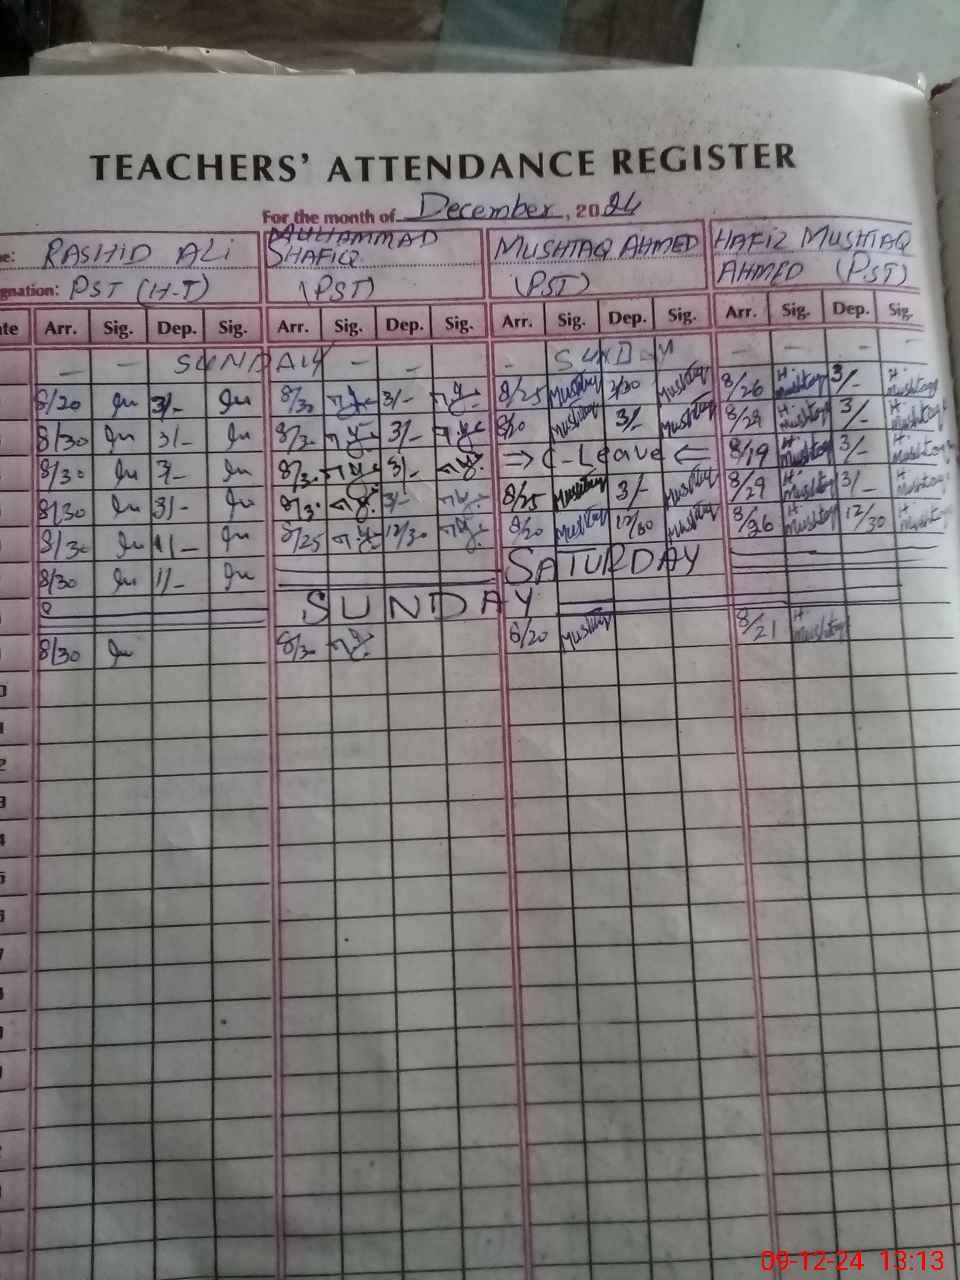 TEACHERS' ATTENDANCE REGISTER
For the month of December, 2024
e: RASHID ALI MUHAMMAD SHAFIQ MUSHTAQ AHMED HAFIZ MUSHTAQ AHMED (PST)
gnation: PST (H-T) (PST) (PST)
te Arr. Sig. Dep. Sig. Arr. Sig. Dep. Sig. Arr. Sig. Dep. Sig. Arr. Sig. Dep. Sig.
— — SUNDAY — — SUNDAY — — — —
8/20 3/- 8/30 3/- 8/25 Mushtaq Mushtaq 8/26 H. Mushtaq 3/- H. Mushtaq
8/30 3/- 8/30 3/- 8/20 Mushtaq 3/- Mushtaq 8/29 H. Mushtaq 3/- H. Mushtaq
8/30 3/- 8/30 3/- ⇒ C-Leave ⇐ 8/19 H. Mushtaq 3/- H. Mushtaq
8/30 3/- 8/30 3/- 8/25 Mushtaq 3/- Mushtaq 8/29 H. Mushtaq 3/- H. Mushtaq
8/30 1/- 8/25 12/30 8/20 Mushtaq 12/30 Mushtaq 8/26 H. Mushtaq 12/30 H. Mushtaq
8/30 1/- SATURDAY
8 SUNDAY
8/30 8/30 8/20 Mushtaq 8/21 H. Mushtaq
0
1
2
3
4
5
6
7
09-12-24 13:13